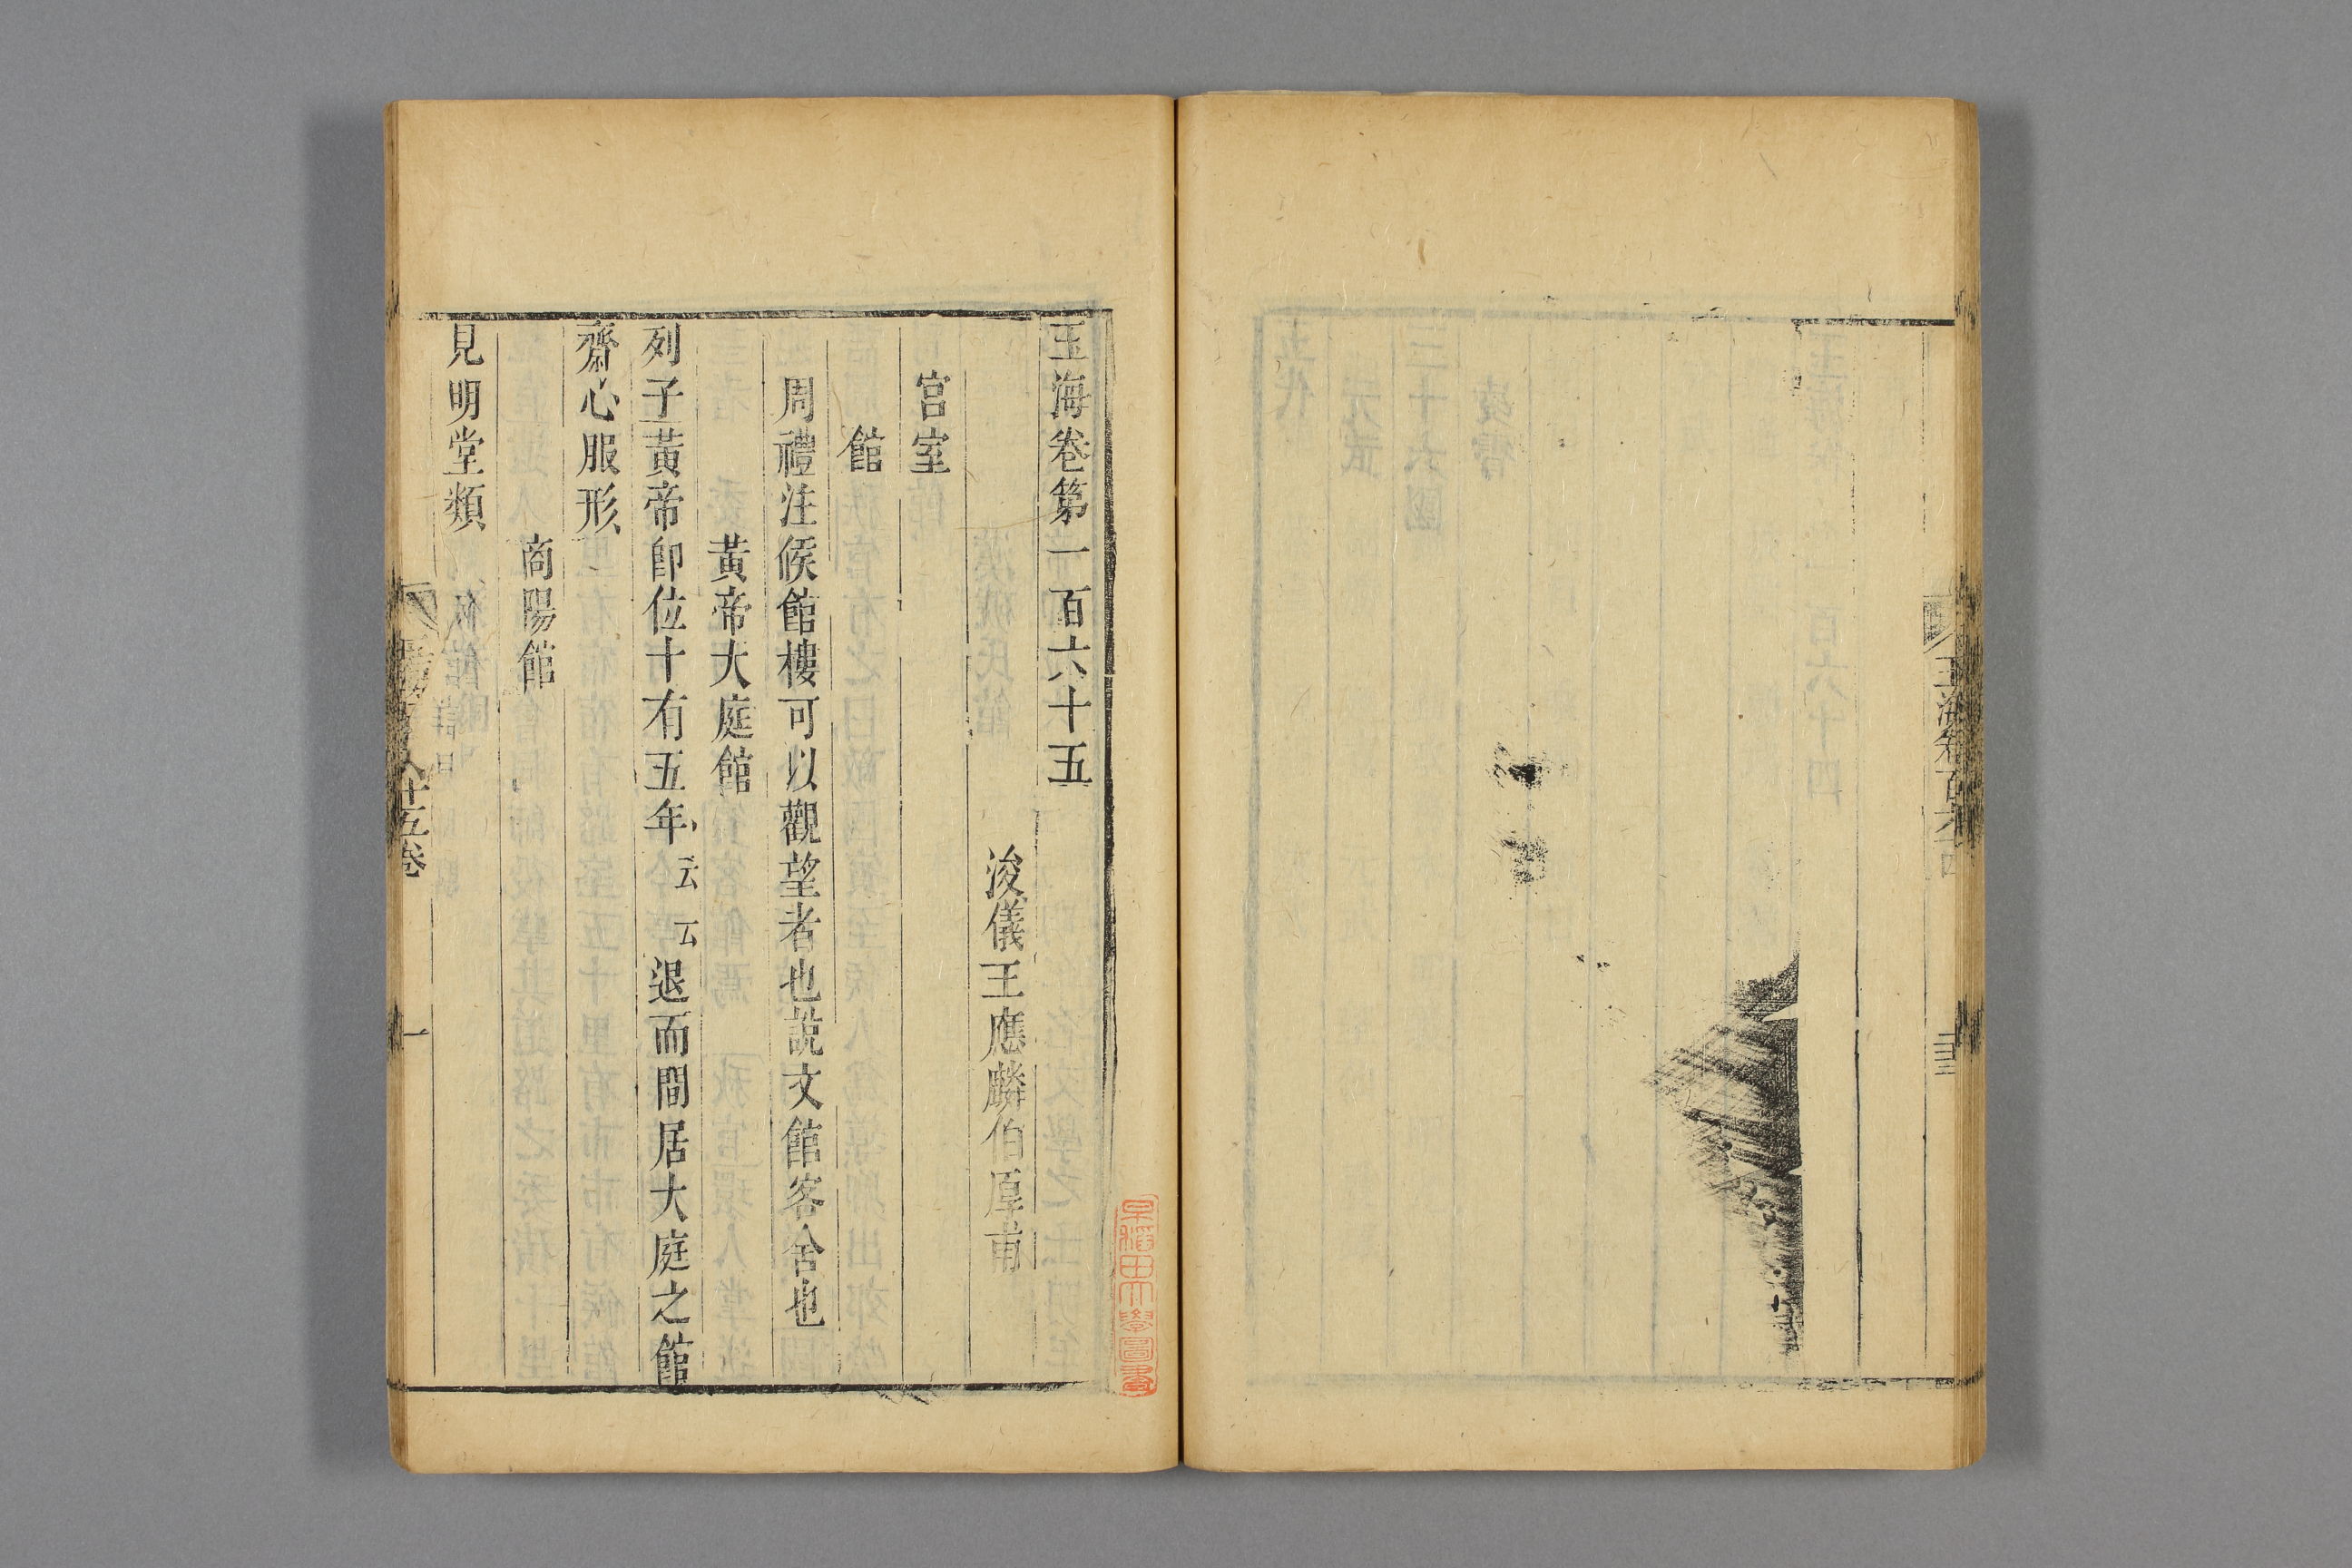 玉海卷百六
三十三
玉海卷第一百六十五
浚儀王應麟伯厚甫
宮室
館
周禮注候館樓可以觀望者也說文館客舍也
黃帝大庭館
列子黃帝卽位十有五年云云退而間居大庭之館
齋心服形
商陽館
見明堂類
十五卷
一
早稲田大學圖書